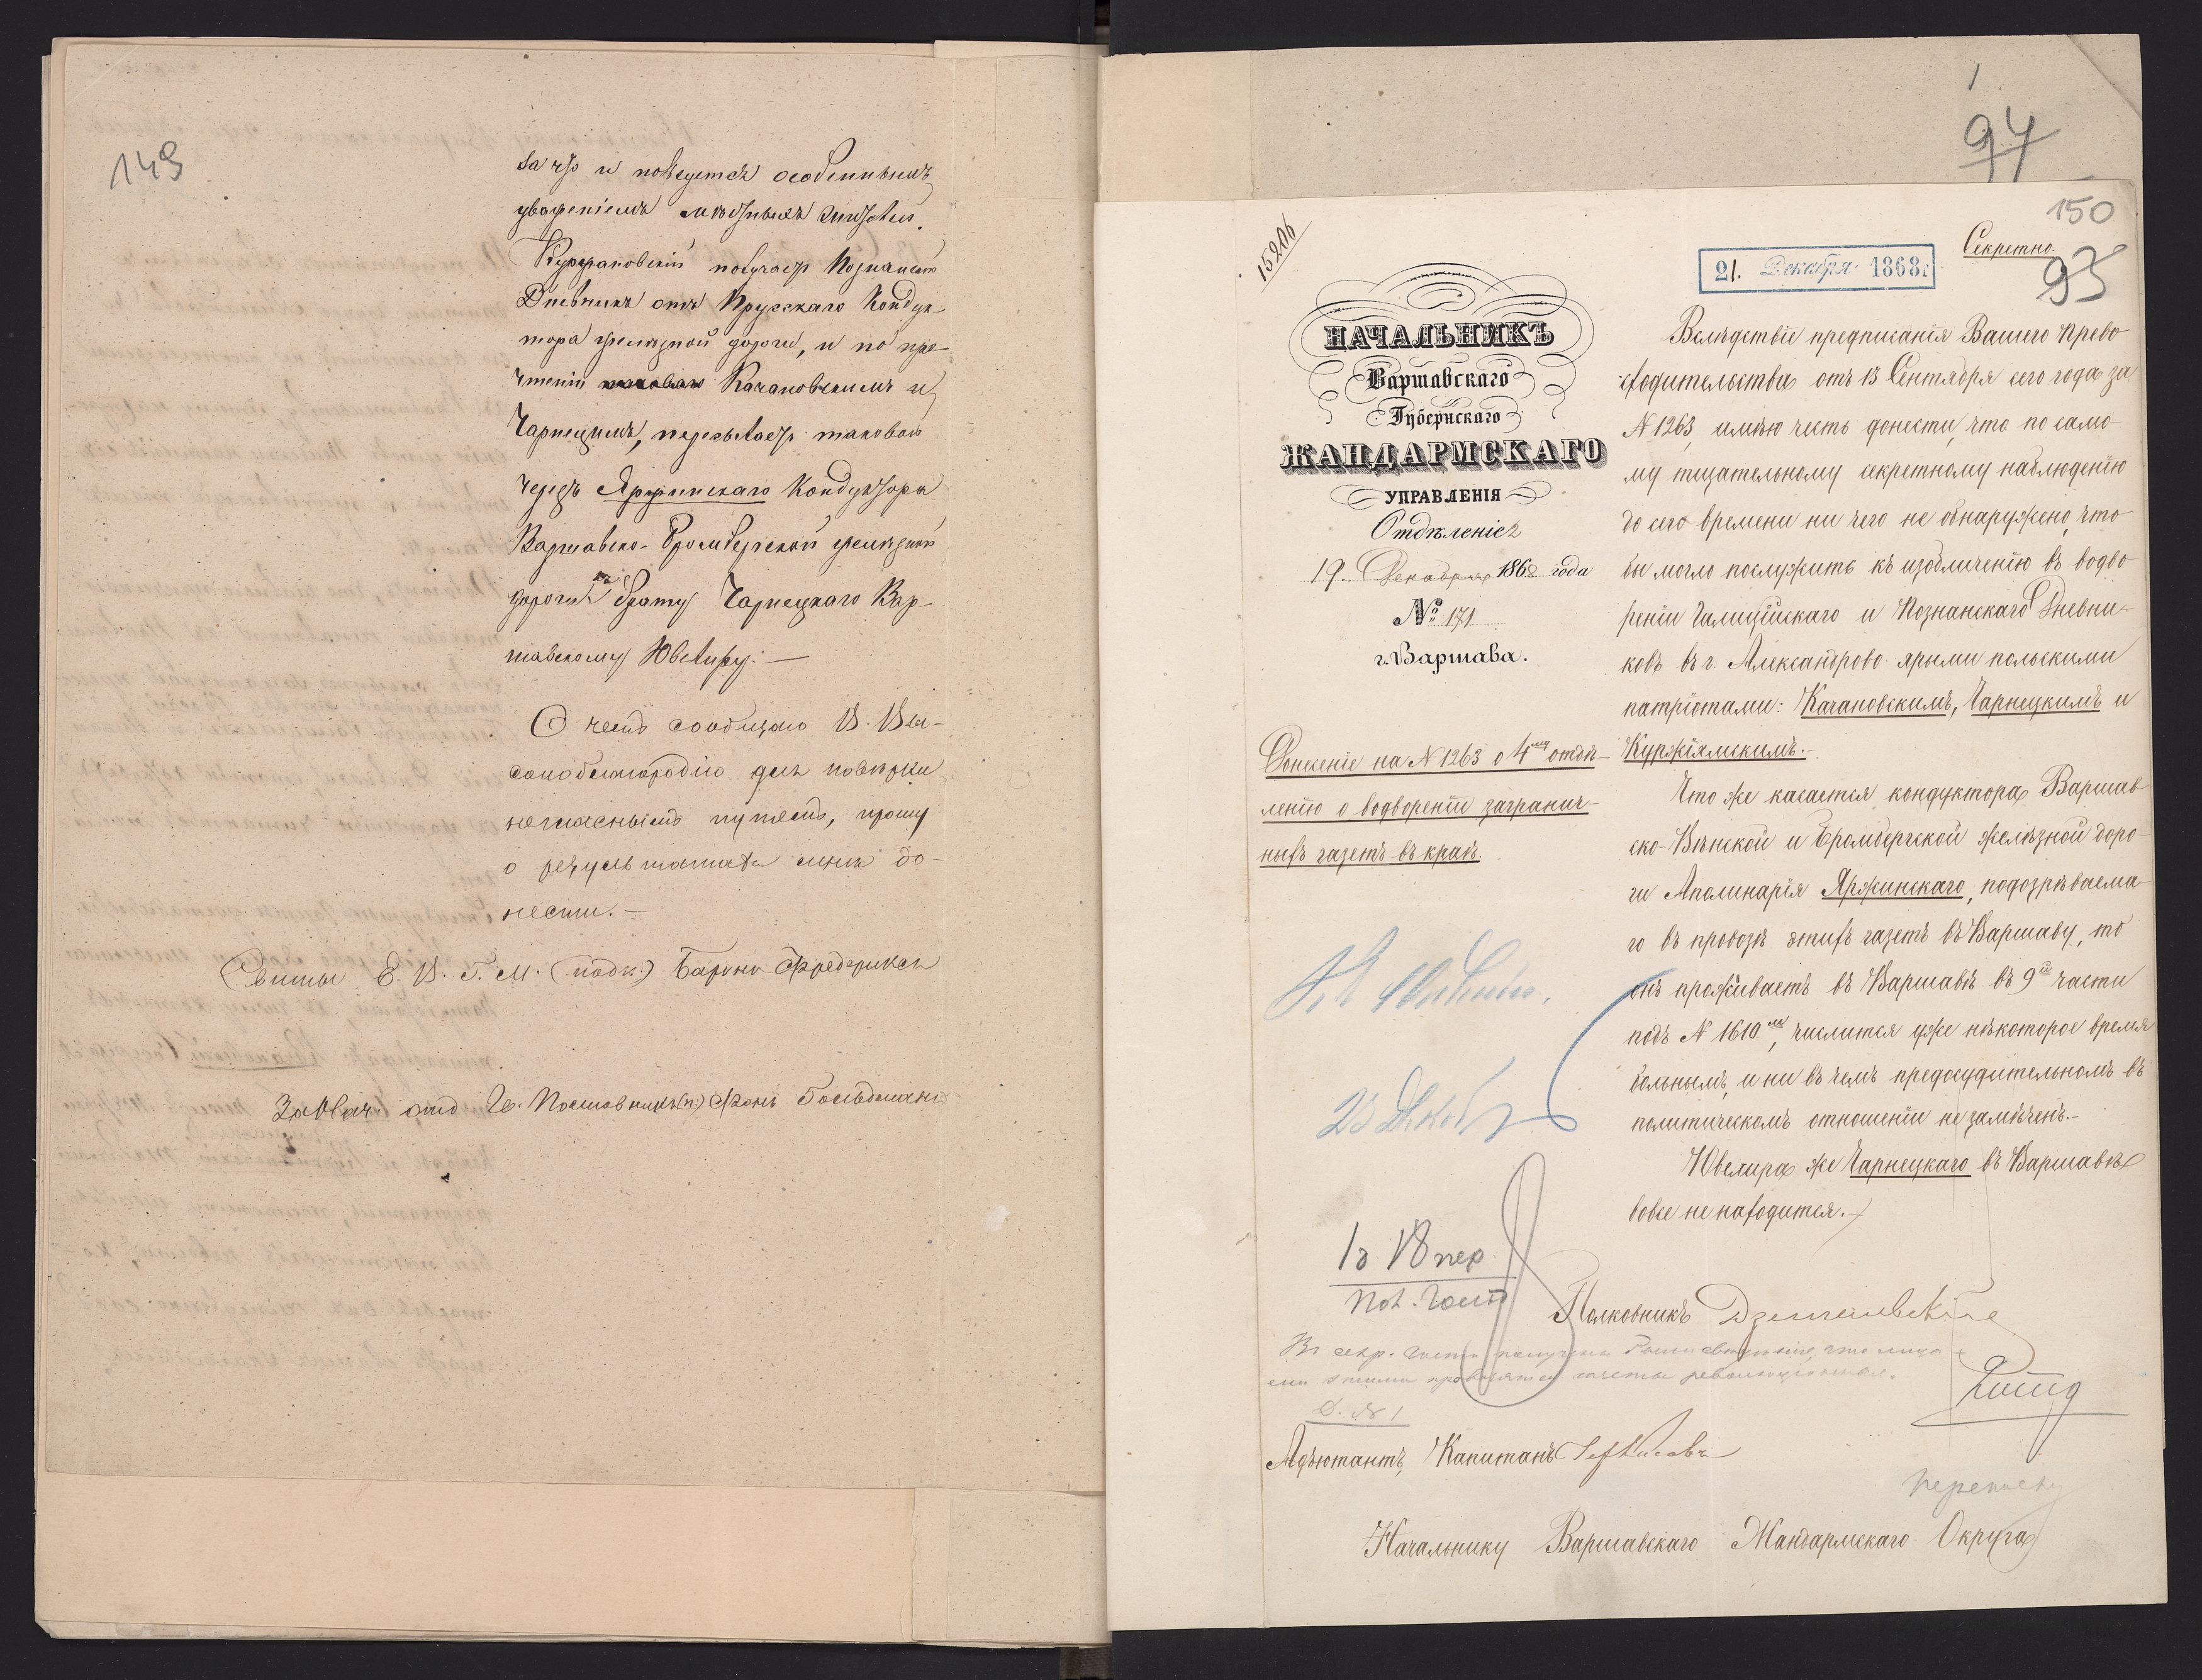 149
за чр и пользуется особеннымъ
уваженіемъ мѣстныхъ жителей.
Куржановскій получаетъ Познанскій
Дневникъ отъ Прусскаго Кондук-
тора желѣзной дороги, и по про-
чтеніи Качановскимъ и
Чарнецкимъ, пересылаетъ таковой
черезъ Яржинскаго Кондуктора
Варшавско-Бромбергской желѣзной
дороги къ брату Чарнецкаго Вар-
шавскому Ювелиру.—
О чемъ сообщаю В. Вы-
сокоблагородію для повѣрки
негласнымъ путемъ, прошу
о результатѣ мнѣ до-
нести.—
Свиты Е. В. Г. М. (подп.) Баронъ Фредериксъ
За Нач. отд. фонъ Гольдманъ
94
150
Секретно
93
15206
21. Декабря 1868 г.
НАЧАЛЬНИКЪ
Варшавскаго
Губернскаго
ЖАНДАРМСКАГО
УПРАВЛЕНІЯ
Отдѣленіе 2
19 Декабря 1868 года
№ 171
г. Варшава.
Донесеніе на № 1263 о 4му отдѣ-
ленію о водвореніи загранич-
ныхъ газетъ въ край.
Вслѣдствіе предписанія Вашего Прево-
сходительства отъ 13 Сентября сего года за
№ 1263, имѣю честь донести, что по само-
му тщательному секретному наблюденію
до сего времени ни чего не обнаружено, что
бы могло послужить къ изобличенію въ водво-
реніи Галиційскаго и Познанскаго Дневни-
ковъ въ г. Александрово ярыми польскими
патріотами: Качановскимъ, Чарнецкимъ и
Куржіямскимъ.—
Что же касается кондуктора Варшав-
ско-Вѣнской и Бромбергской желѣзной доро-
ги Аполинарія Яржинскаго, подозрѣваема-
го въ провозѣ этихъ газетъ въ Варшаву, то
онъ проживаетъ въ Варшавѣ въ 9й части
подъ № 1610м, числится уже нѣкоторое время
больнымъ, и ни въ чемъ предосудительномъ въ
политическомъ отношеніи не замѣченъ.—
Ювелира же Чарнецкаго въ Варшавѣ
вовсе не находится.—
23 Декабр
Полковникъ
В секр. части получены что лица-
ми этими газеты
Д. № 1
Адъютантъ, Капитанъ
переписку
Начальнику Варшавскаго Жандармскаго Округа